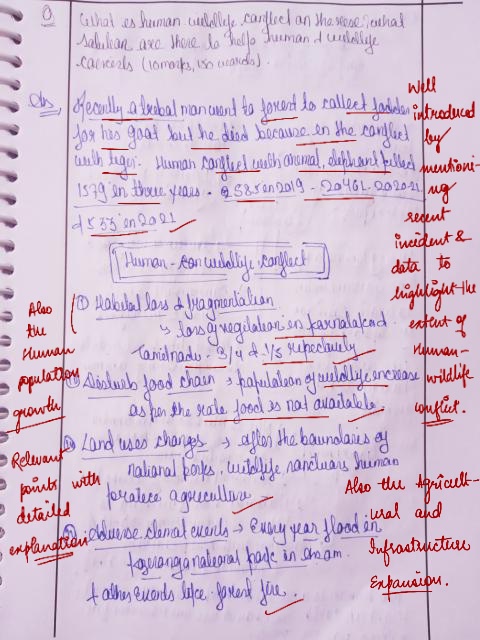 Q. What is human wildlife conflict and the issue? what
solution are there to help human & wildlife
concerns (10 marks, 150 words).
Ans, Recently a tribal man went to forest to collect fodder
for his goat but he died because in the conflict
with tiger. Human conflict with animal, elephant killed
1579 in three years - 585 in 2019 - 20 461 2020-21
& 533 in 2021
Human - wildlife conflict
Habitat loss & fragmentation
loss of vegetation in
Tamilnadu - 3/4 & 1/3 repectively
food chain → population of wildlife increase
as per the rate food is not available
Land uses changes → after the boundaries of
national parks, wildlife santuars human
pratece agreculture
adverse climat events → Every year flood in
kaziranga national park in Assam
+ other events life forest fire.
Well
introduced
by
mentioni-
ng
recent
incident &
data to
highlight the
extent of
Human-
wildlife
conflict.
Also
the
Human
population
growth
Relevant
points with
detailed
explanation
Also the Agricult-
ural and
Infrastructure
Expansion.